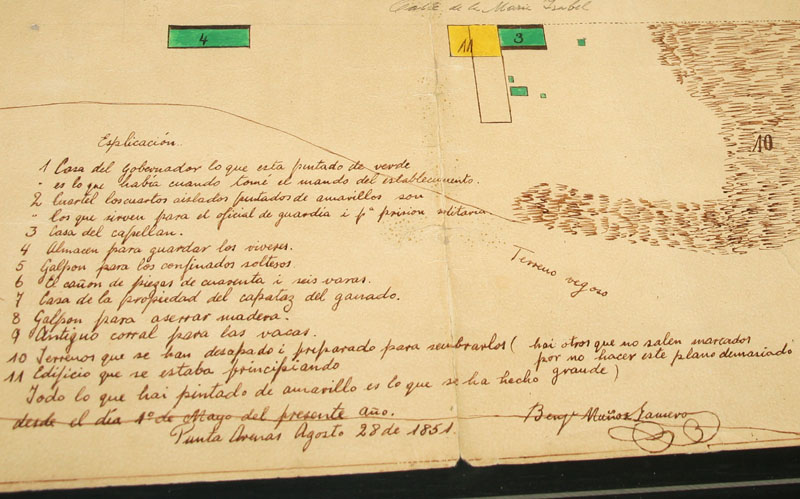 Calle de la Maria Isabel
4
11
3
10
Esplicación.
1 Casa del Gobernador lo que esta pintado de verde
" es lo que había cuando tomé el mando del establecimiento.
2 Cuartel los cuartos aislados pintados de amarillos son
" los que sirven para el oficial de guardia i pª prision solitaria.
3 Casa del capellan.
4 Almacen para guardar los viveres.
5 Galpon para los confinados solteros.
6 El cañon de piezas de cuarenta i seis varas.
7 Casa de la propiedad del capataz del ganado.
8 Galpon para aserrar madera.
9 Antiguo corral para las vacas.
10 Terrenos que se han desapado i preparado para sembrarlos ( hai otros que no salen marcados
por no hacer este plano demasiado
grande )
11 Edificio que se estaba principiando
Todo lo que hai pintado de amarillo es lo que se ha hecho
desde el día 1º de Mayo del presente año.
Punta Arenas Agosto 28 de 1851.
Terreno vegoso
Benjⁿ Muñoz Gamero